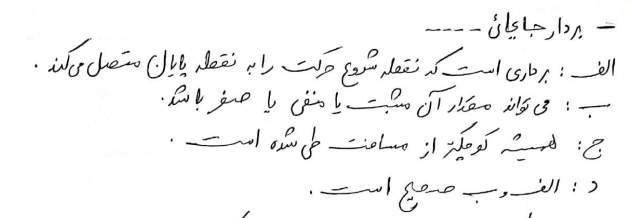 - بردار جابجائی ----
الف : برداری است که نقطه شروع حرکت را به نقطه پایان متصل می‌کند .
ب : می تواند مقدار آن مثبت یا منفی یا صفر باشد.
ج : همیشه کوچکتر از مسافت طی شده است .
د : الف و ب صحیح است .